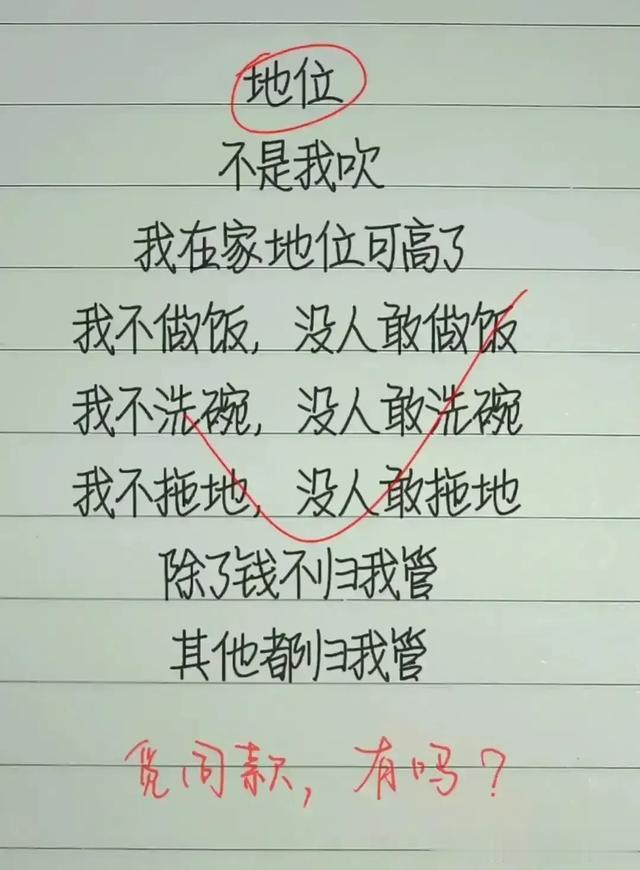 地位
不是我吹
我在家地位可高了
我不做饭,没人敢做饭
我不洗碗,没人敢洗碗
我不拖地,没人敢拖地
除了钱不归我管
其他都归我管
觅同款,有吗?